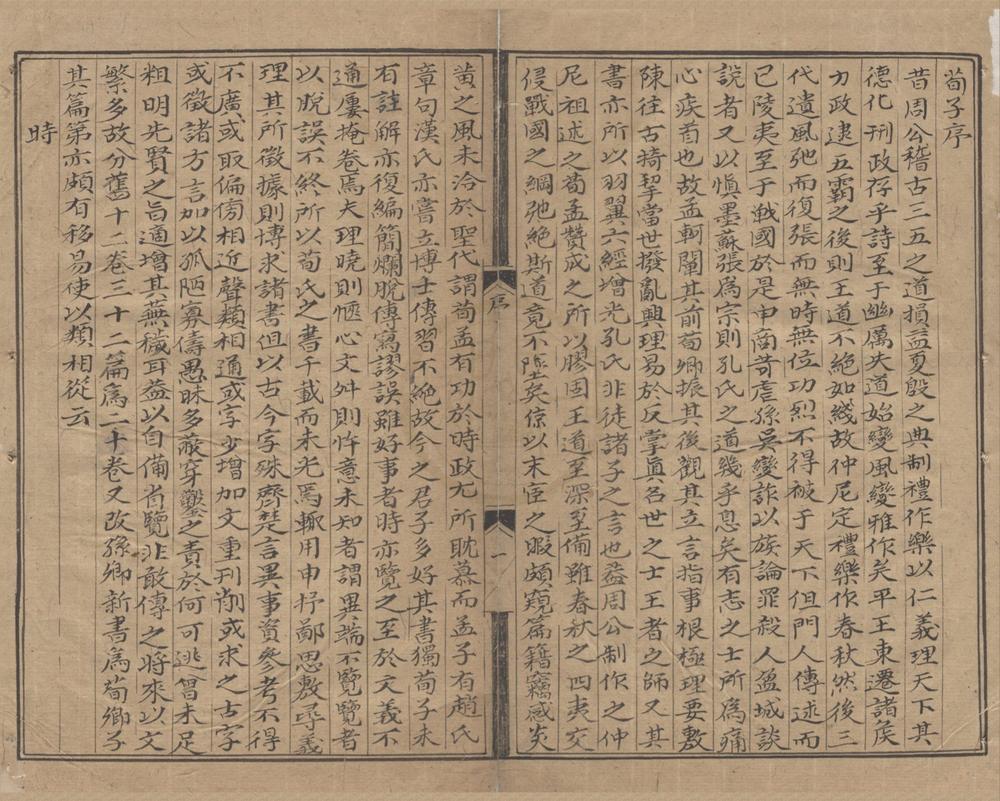 荀子序
昔周公稽古三五之道損益夏殷之典制禮作樂以仁義理天下其
德化刑政存乎詩至于幽厲失道始變風變雅作矣平王東遷諸侯
力政逮五霸之後則王道不絕如綫故仲尼定禮樂作春秋然後三
代遺風弛而復張而無時無位功烈不得被于天下但門人傳述而
已陵夷至于戰國於是申商苛虐孫吳變詐以族論罪殺人盈城談
說者又以愼墨蘇張爲宗則孔氏之道幾乎息矣有志之士所爲痛
心疾首也故孟軻闡其前荀卿振其後觀其立言指事根極理要敷
陳往古掎挈當世撥亂興理易於反掌眞名世之士王者之師又其
書亦所以羽翼六經增光孔氏非徒諸子之言也蓋周公制作之仲
尼祖述之荀孟贊成之所以膠固王道至深至備雖春秋之四夷交
侵戰國之綱弛絕斯道竟不墜矣倞以末宦之暇頗窺篇籍竊感炎
黃之風未洽於聖代謂荀孟有功於時政尤所耽慕而孟子有趙氏
章句漢氏亦嘗立博士傳習不絕故今之君子多好其書獨荀子未
有註解亦復編簡爛脫傳寫謬誤雖好事者時亦覽之至於文義不
通屢掩卷焉夫理曉則愜心文舛則忤意未知者謂異端不覽覽者
以脫誤不終所以荀氏之書千載而未光焉輒用申抒鄙思敷尋義
理其所徵據則博求諸書但以古今字殊齊楚言異事資參考不得
不廣或取偏傍相近聲類相通或字少增加文重刊削或求之古字
或徵諸方言加以孤陋寡儔愚昧多蔽穿鑿之責於何可逃曾未足
粗明先賢之旨適增其蕪穢耳益以自備省覽非敢傳之將來以文
繁多故分舊十二卷三十二篇爲二十卷又改孫卿新書爲荀卿子
其篇第亦頗有移易使以類相從云
時
序
一